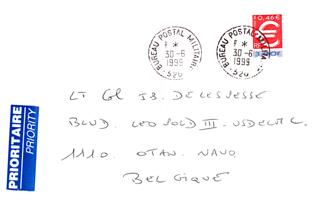 BUREAU POSTAL MILITAIRE
*
30-6
1999
520
BUREAU POSTAL MILITAIRE
*
30-6
1999
520
0,46 €
RF
PRIORITAIRE
PRIORITY
LT Col J3. DELESJESSE
BLVD. LEOPOLD III.
1110. OTAN. NAVO.
BELGIQUE